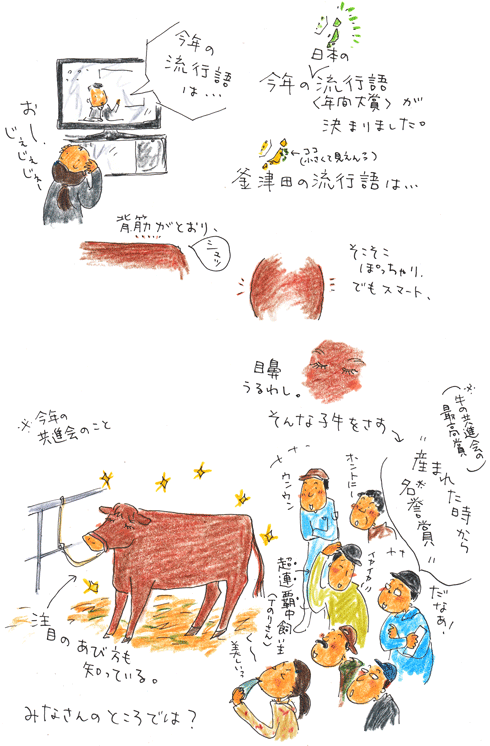 今年の
流行語
は…
おー、
じぇじぇ
じぇー
日本の
今年の流行語
〈年間大賞〉が
決まりました。
ココ
(小さくて見えんろ)
釜津田の流行語は…
背筋がとおり、
そこそこ
ぽっちゃり、
でもスマート、
目鼻
うるわし。
そんな子牛をさぁ
(牛の共進会の
最高賞)
"産まれた時から
名誉賞"
だなぁ!
※今年の
共進会のこと
ウンウン
ホントにー
イヤイヤ
超連覇中
飼い主
美しい…
注目のあび方も
知っている。
みなさんのところでは?